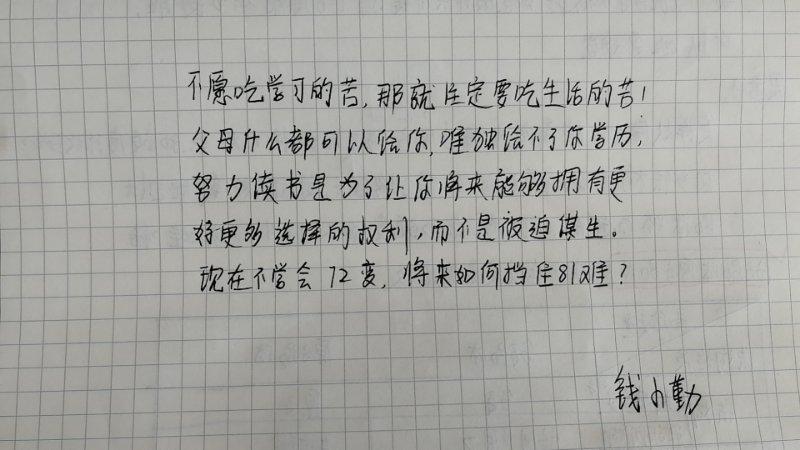 不愿吃学习的苦，那就注定要吃生活的苦！
父母什么都可以给你，唯独给不了你学历，
努力读书是为了让你将来能够拥有更
好更多选择的权利，而不是被迫谋生。
现在不学会72变，将来如何挡住81难？
钱小勤